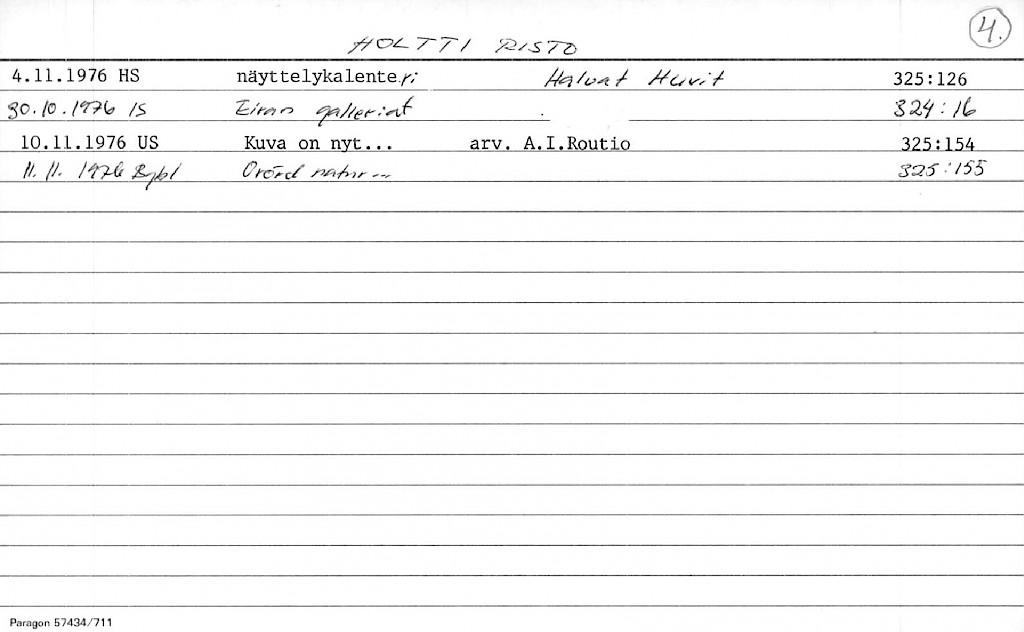 4.
HOLTTI RISTO
4.11.1976 HS näyttelykalenteri Halvat Huvit 325:126
30.10.1976 IS Eiran galleriat 324:16
10.11.1976 US Kuva on nyt... arv. A.I.Routio 325:154
11.11.1976 Bybl Orörd natur... 325:155
Paragon 57434/711